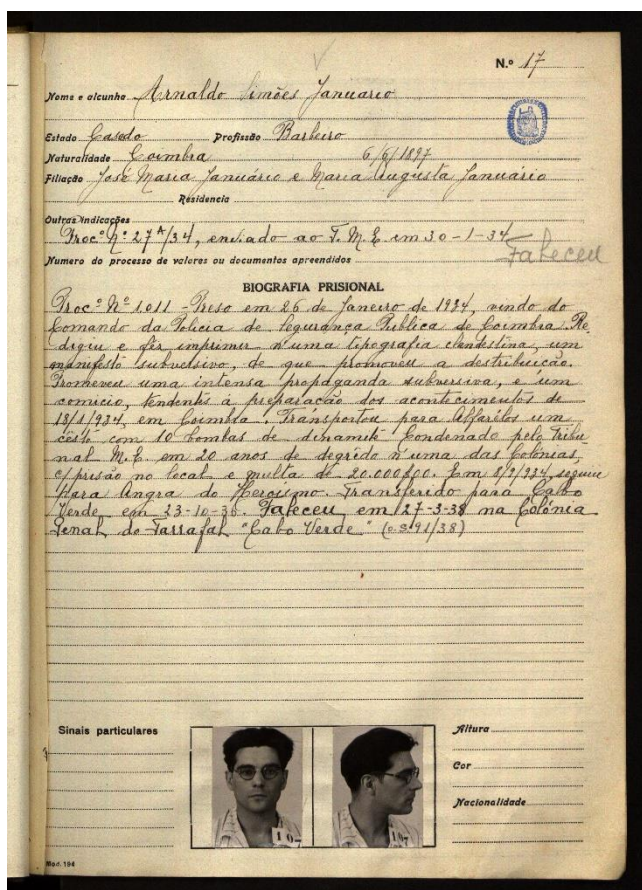 N.º 17
Nome e alcunha Arnaldo Simões Januario
Estado Casado Profissão Barbeiro
Naturalidade Coimbra 6/6/1897
Filiação José Maria Januário e Maria Augusta Januário
Residencia
Outras indicações
Proc.º Nº 27A/34, enviado ao T. M. E. em 30-1-34
Faleceu
Numero do processo de valores ou documentos apreendidos
BIOGRAFIA PRISIONAL
Proc.º Nº 1.011 - Preso em 26 de Janeiro de 1934, vindo do
Comando da Policia de Segurança Publica de Coimbra. Re-
digiu e fez imprimir n'uma tipografia clandestina, um
manifesto subversivo, de que promoveu a destribuição.
Promoveu uma intensa propaganda subversiva, e um
comicio, tendentes á preparação dos acontecimentos de
18/1/934, em Coimbra. Transportou para Alfarélos um
cêsto com 10 bombas de dinamite. Condenado pelo Tribu-
nal M.E. em 20 anos de degrêdo n'uma das Colónias,
c/ prisão no local, e multa de 20.000$00. Em 8/9/934, seguiu
para Angra do Heroismo. Transferido para Cabo
Verde em 23-10-36. Faleceu em 27-3-38 na Colónia
Penal do Tarrafal "Cabo Verde" (o.s. 91/38)
Sinais particulares
Altura
Cor
Nacionalidade
Mod. 194